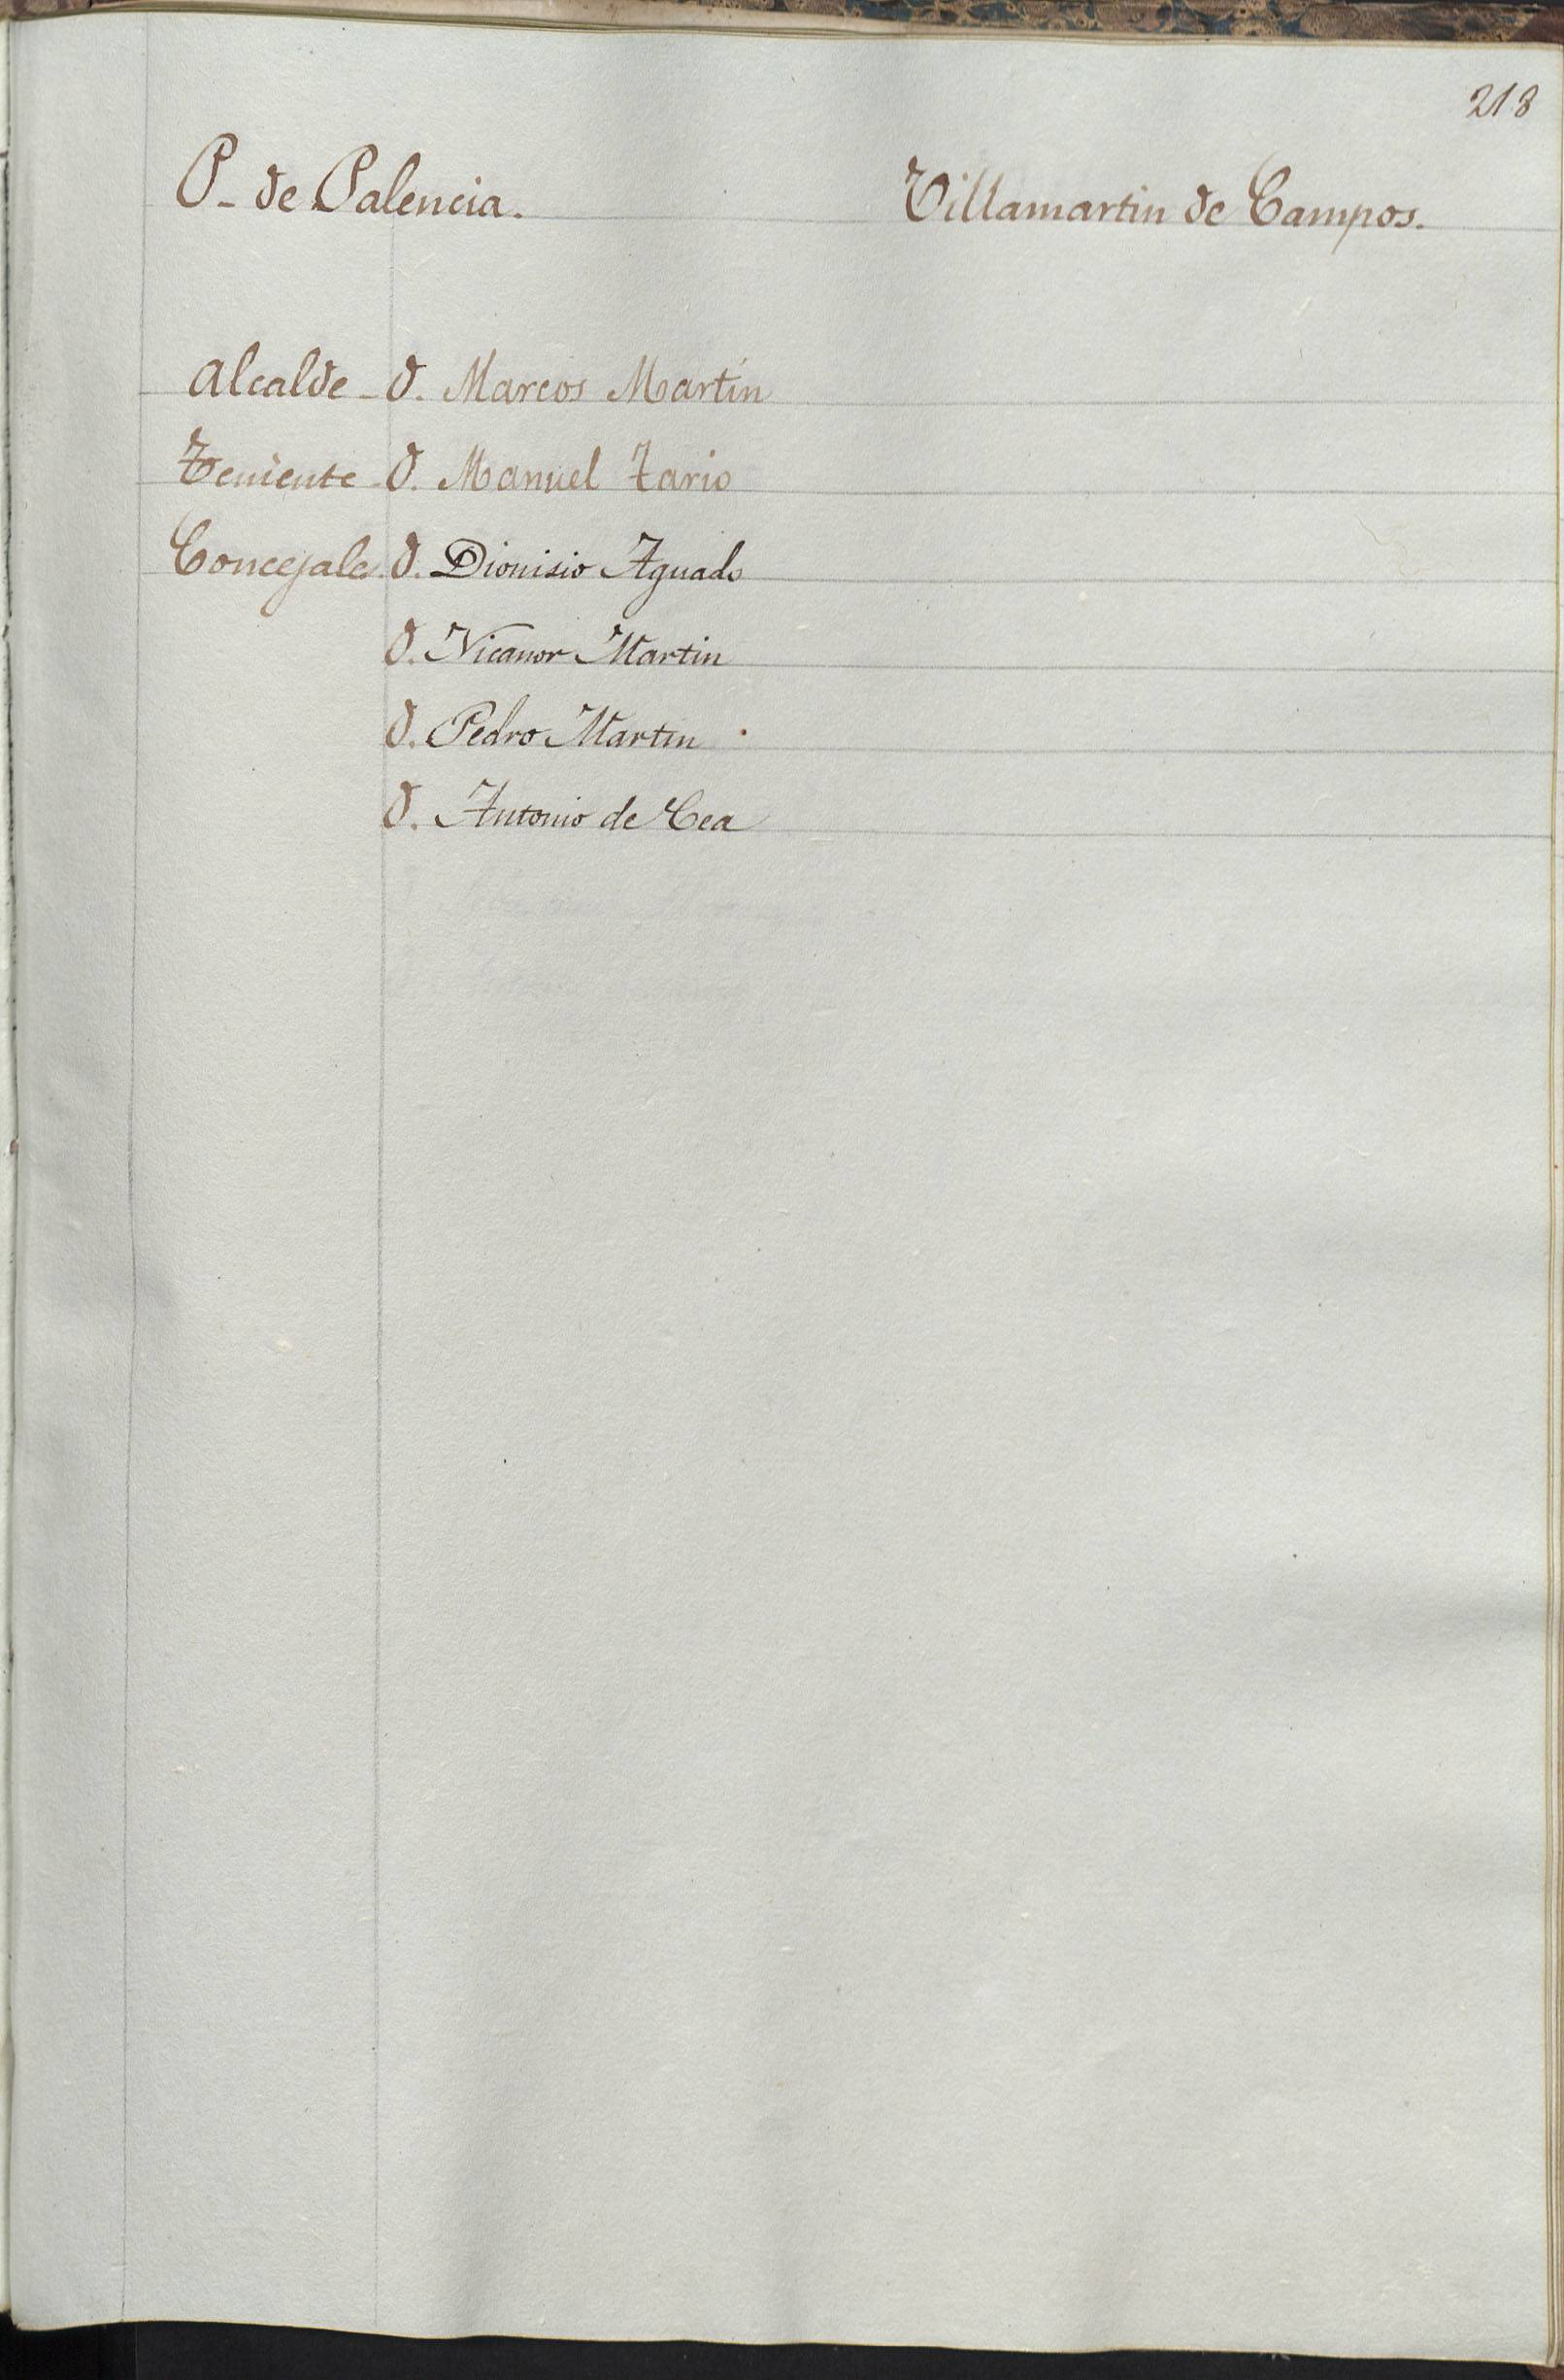 218
P- de Palencia. Villamartin de Campos.
Alcalde - D. Marcos Martín
Teniente - D. Manuel Tario
Concejales. D. Dionisio Aguado
D. Nicanor Martin
D. Pedro Martin
D. Antonio de Cea